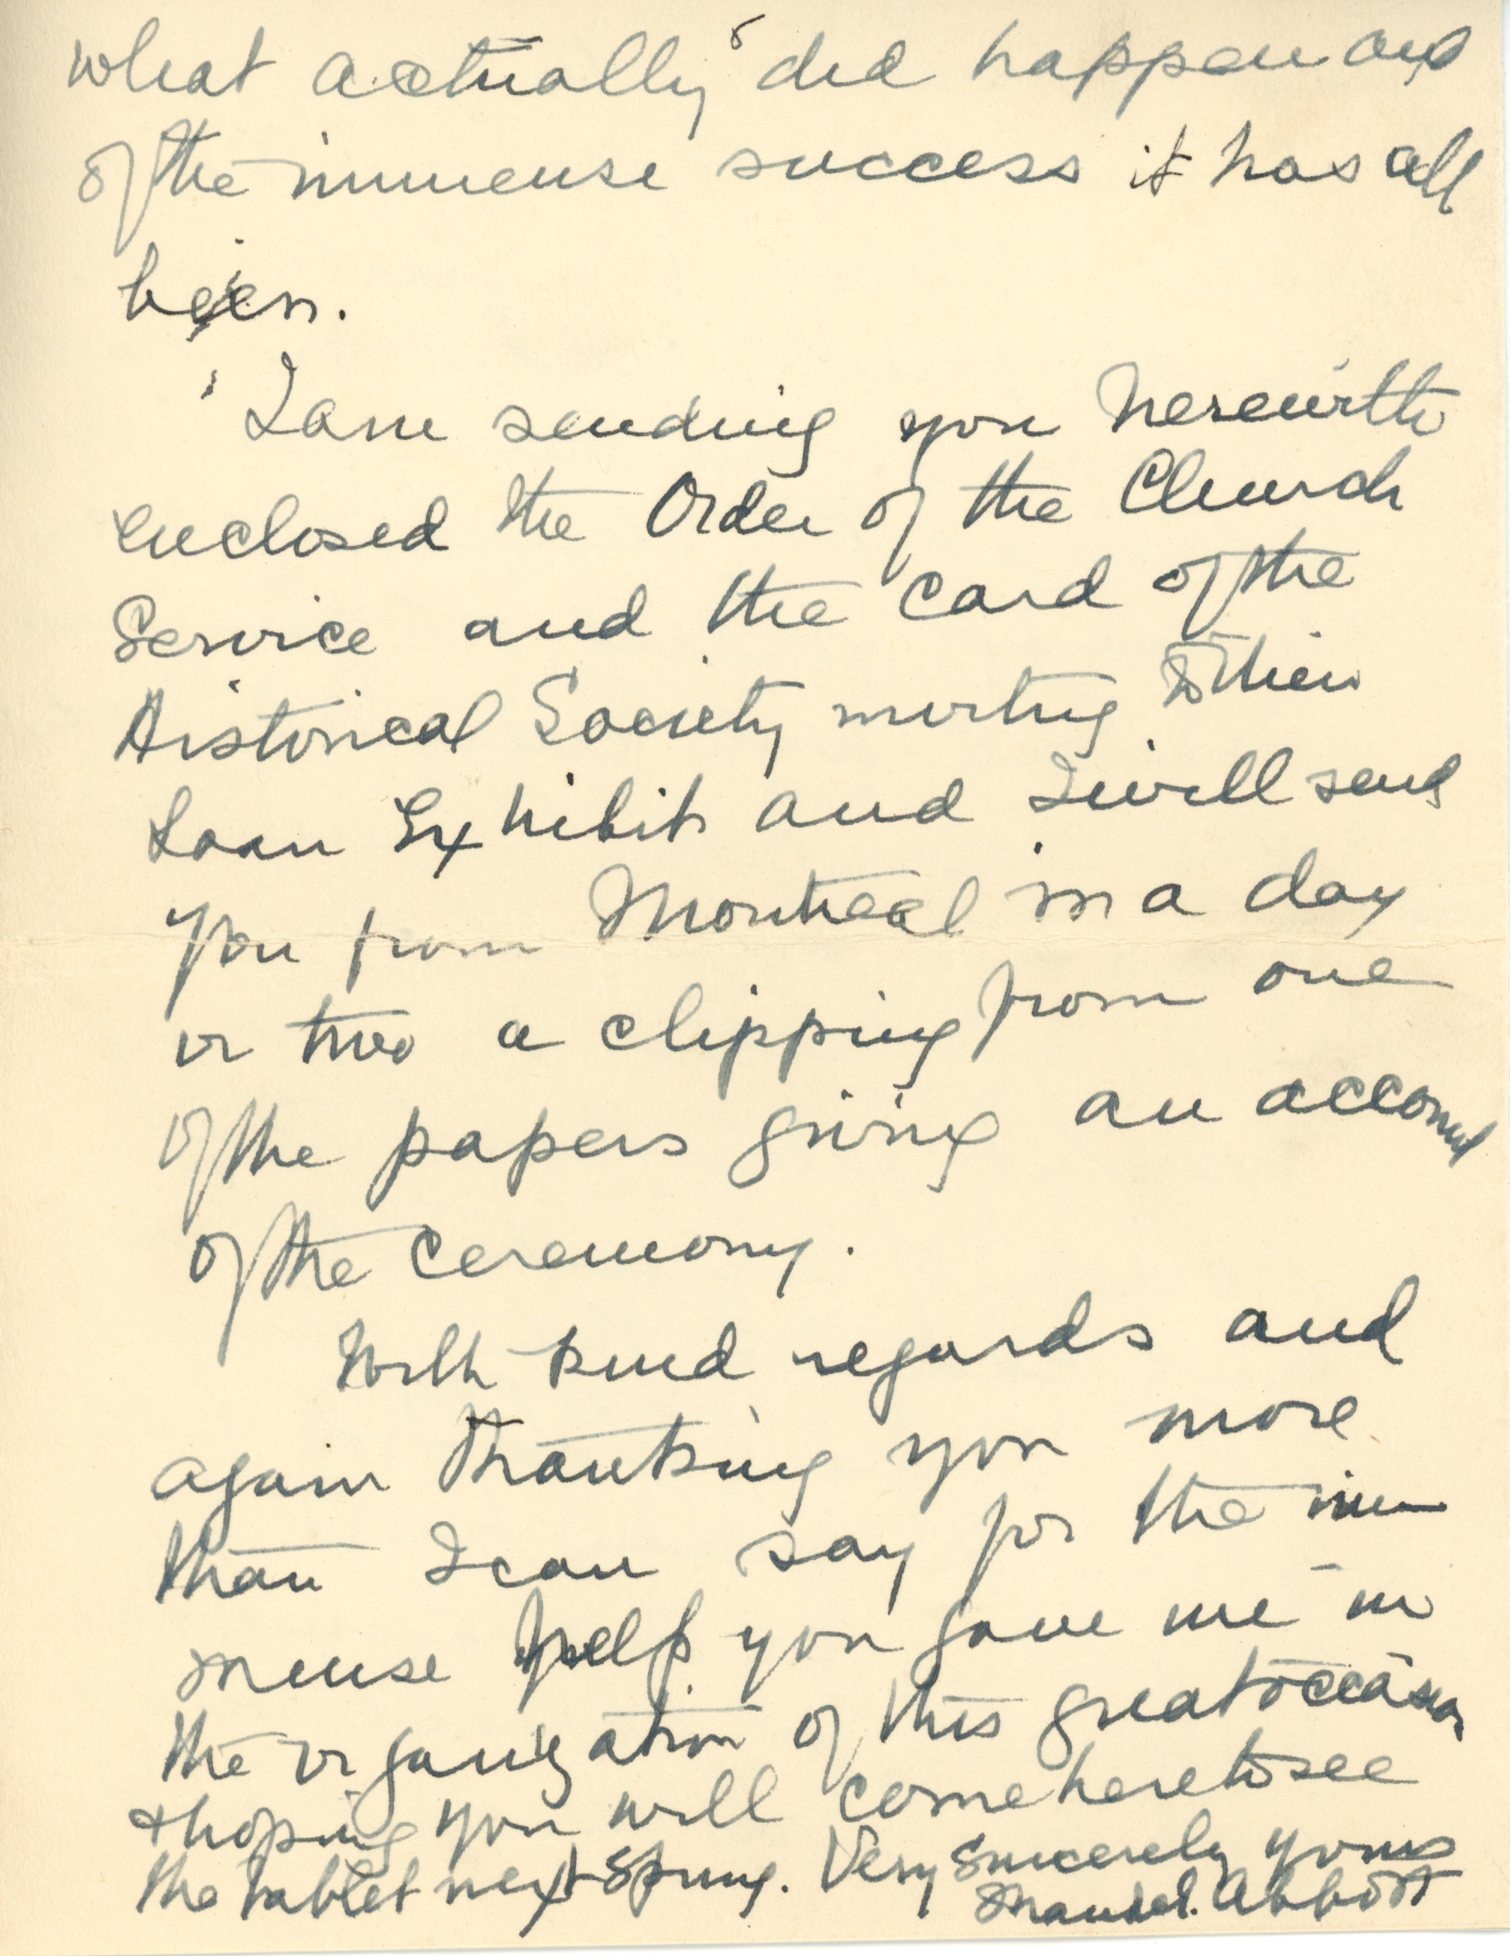 what actually did happen and
of the immense success it has all
been.
I am sending you herewith
enclosed the Order of the Church
Service and the Card of the
Historical Society inviting to their
Loan Exhibit and I will send
you from Montreal in a day
or two a clipping from one
of the papers giving an account
of the ceremony.
With kind regards and
again thanking you more
than I can say for the im
mense help you gave me in
the organization of this great occasion
& hoping you will come here to see
the tablet next Spring. Very Sincerely yours
Abbott